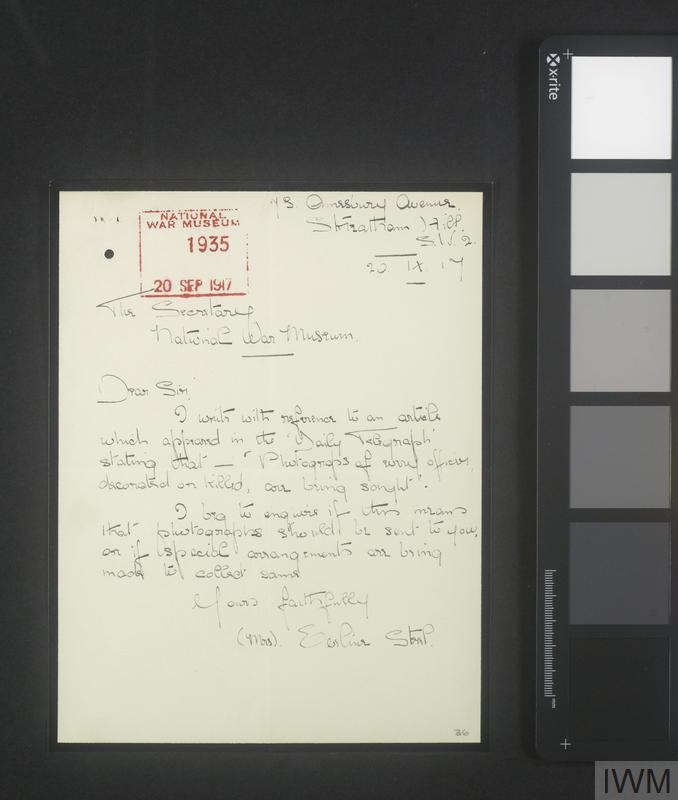 73 Amesbury Avenue.
Streatham Hill.
S.W. 2.
20. IX. 17
NATIONAL
WAR MUSEUM
1935
20 SEP 1917
The Secretary
National War Museum.
Dear Sir,
I write with reference to an article
which appeared in the "Daily Telegraph"
stating that — "Photograps of every officer,
decorated or killed, are being sought".
I beg to enquire if this means
that photographs should be sent to you,
or if special arrangements are being
made to collect same
Yours faithfully
(Mrs). Steel.
x-rite
mm
IWM